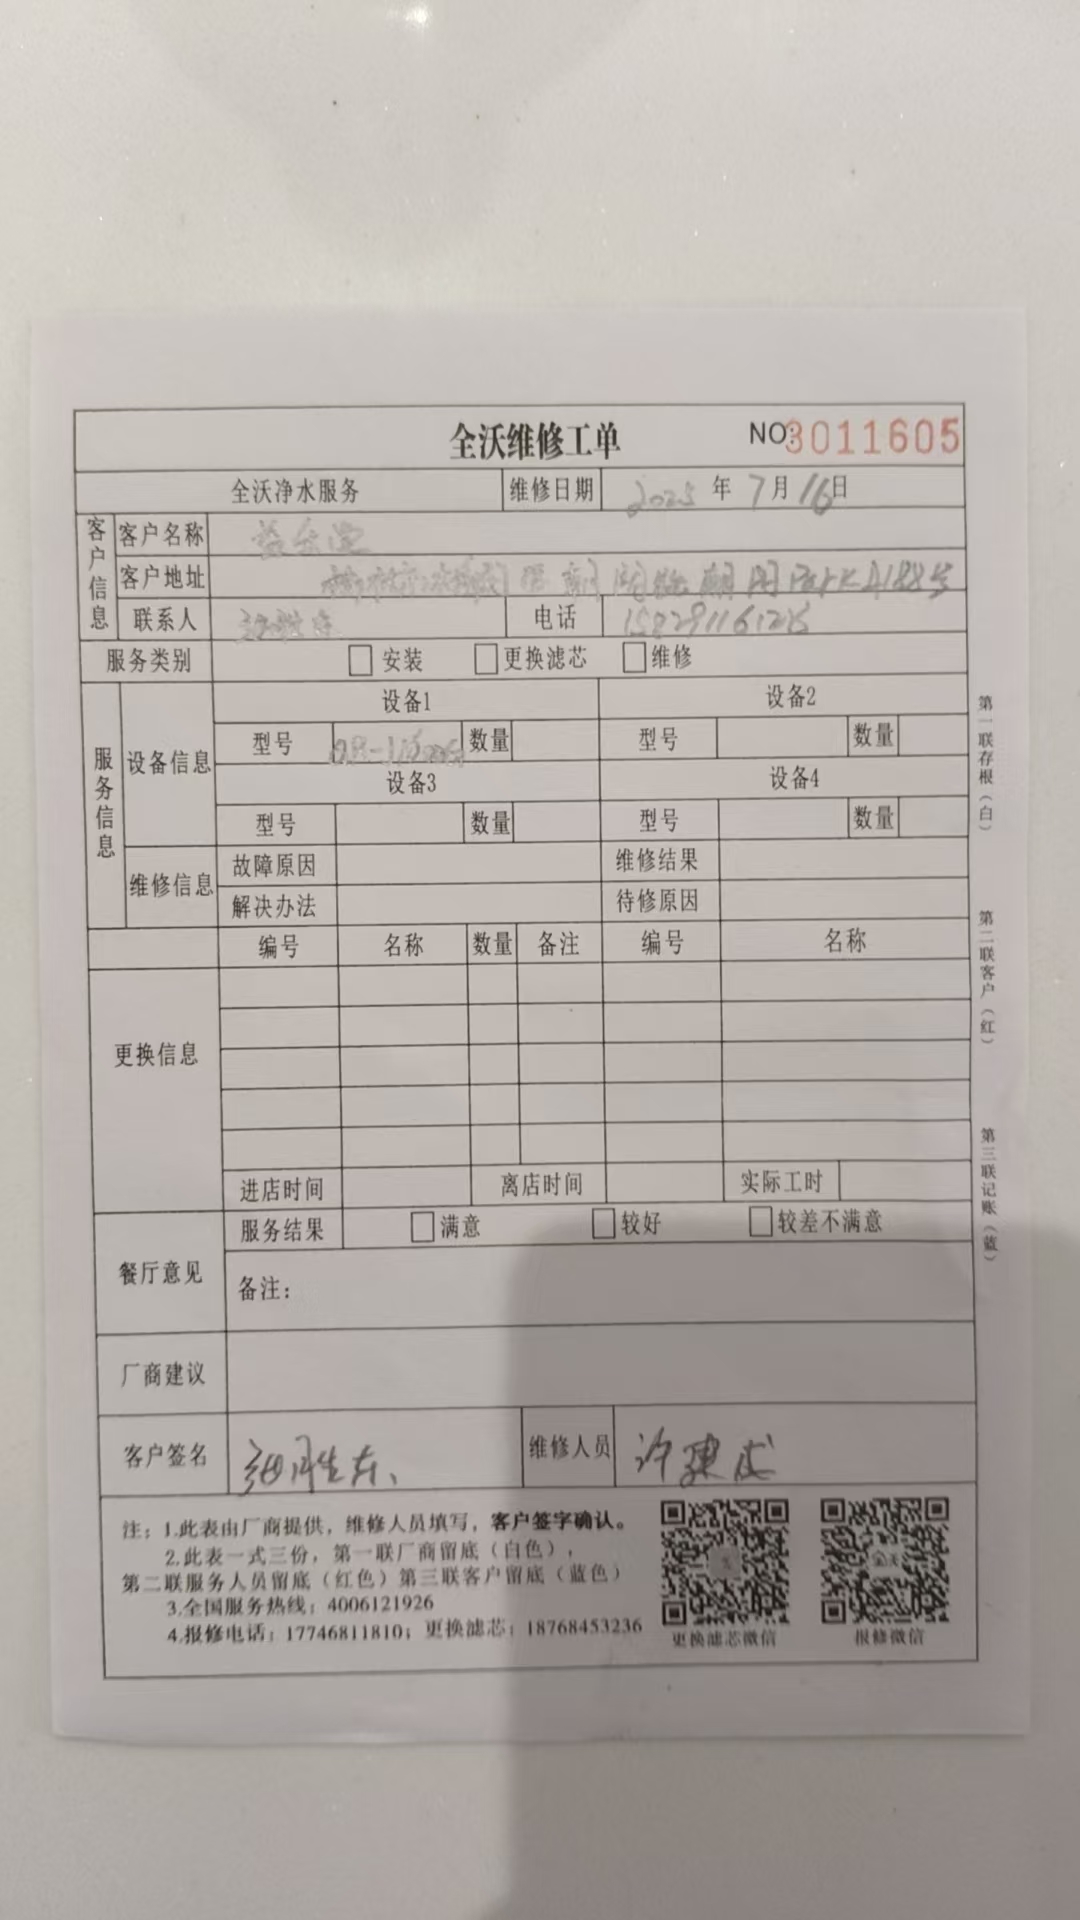 全沃维修工单
NO:3011605
全沃净水服务 维修日期 2025年7月16日
客户信息
客户名称
客户地址 Park A188号
联系人 电话
服务类别 安装 更换滤芯 维修
服务信息
设备信息
设备1 设备2
型号 数量 型号 数量
设备3 设备4
型号 数量 型号 数量
维修信息
故障原因 维修结果
解决办法 待修原因
编号 名称 数量 备注 编号 名称
更换信息
进店时间 离店时间 实际工时
餐厅意见
服务结果 满意 较好 较差不满意
备注:
厂商建议
客户签名 维修人员 许建成
注:1.此表由厂商提供,维修人员填写,客户签字确认。
2.此表一式三份,第一联厂商留底(白色),
第二联服务人员留底(红色)第三联客户留底(蓝色)
3.全国服务热线:4006121926
4.报修电话:17746811810;更换滤芯:18768453236
更换滤芯微信 报修微信
第一联存根(白)
第二联客户(红)
第三联记账(蓝)